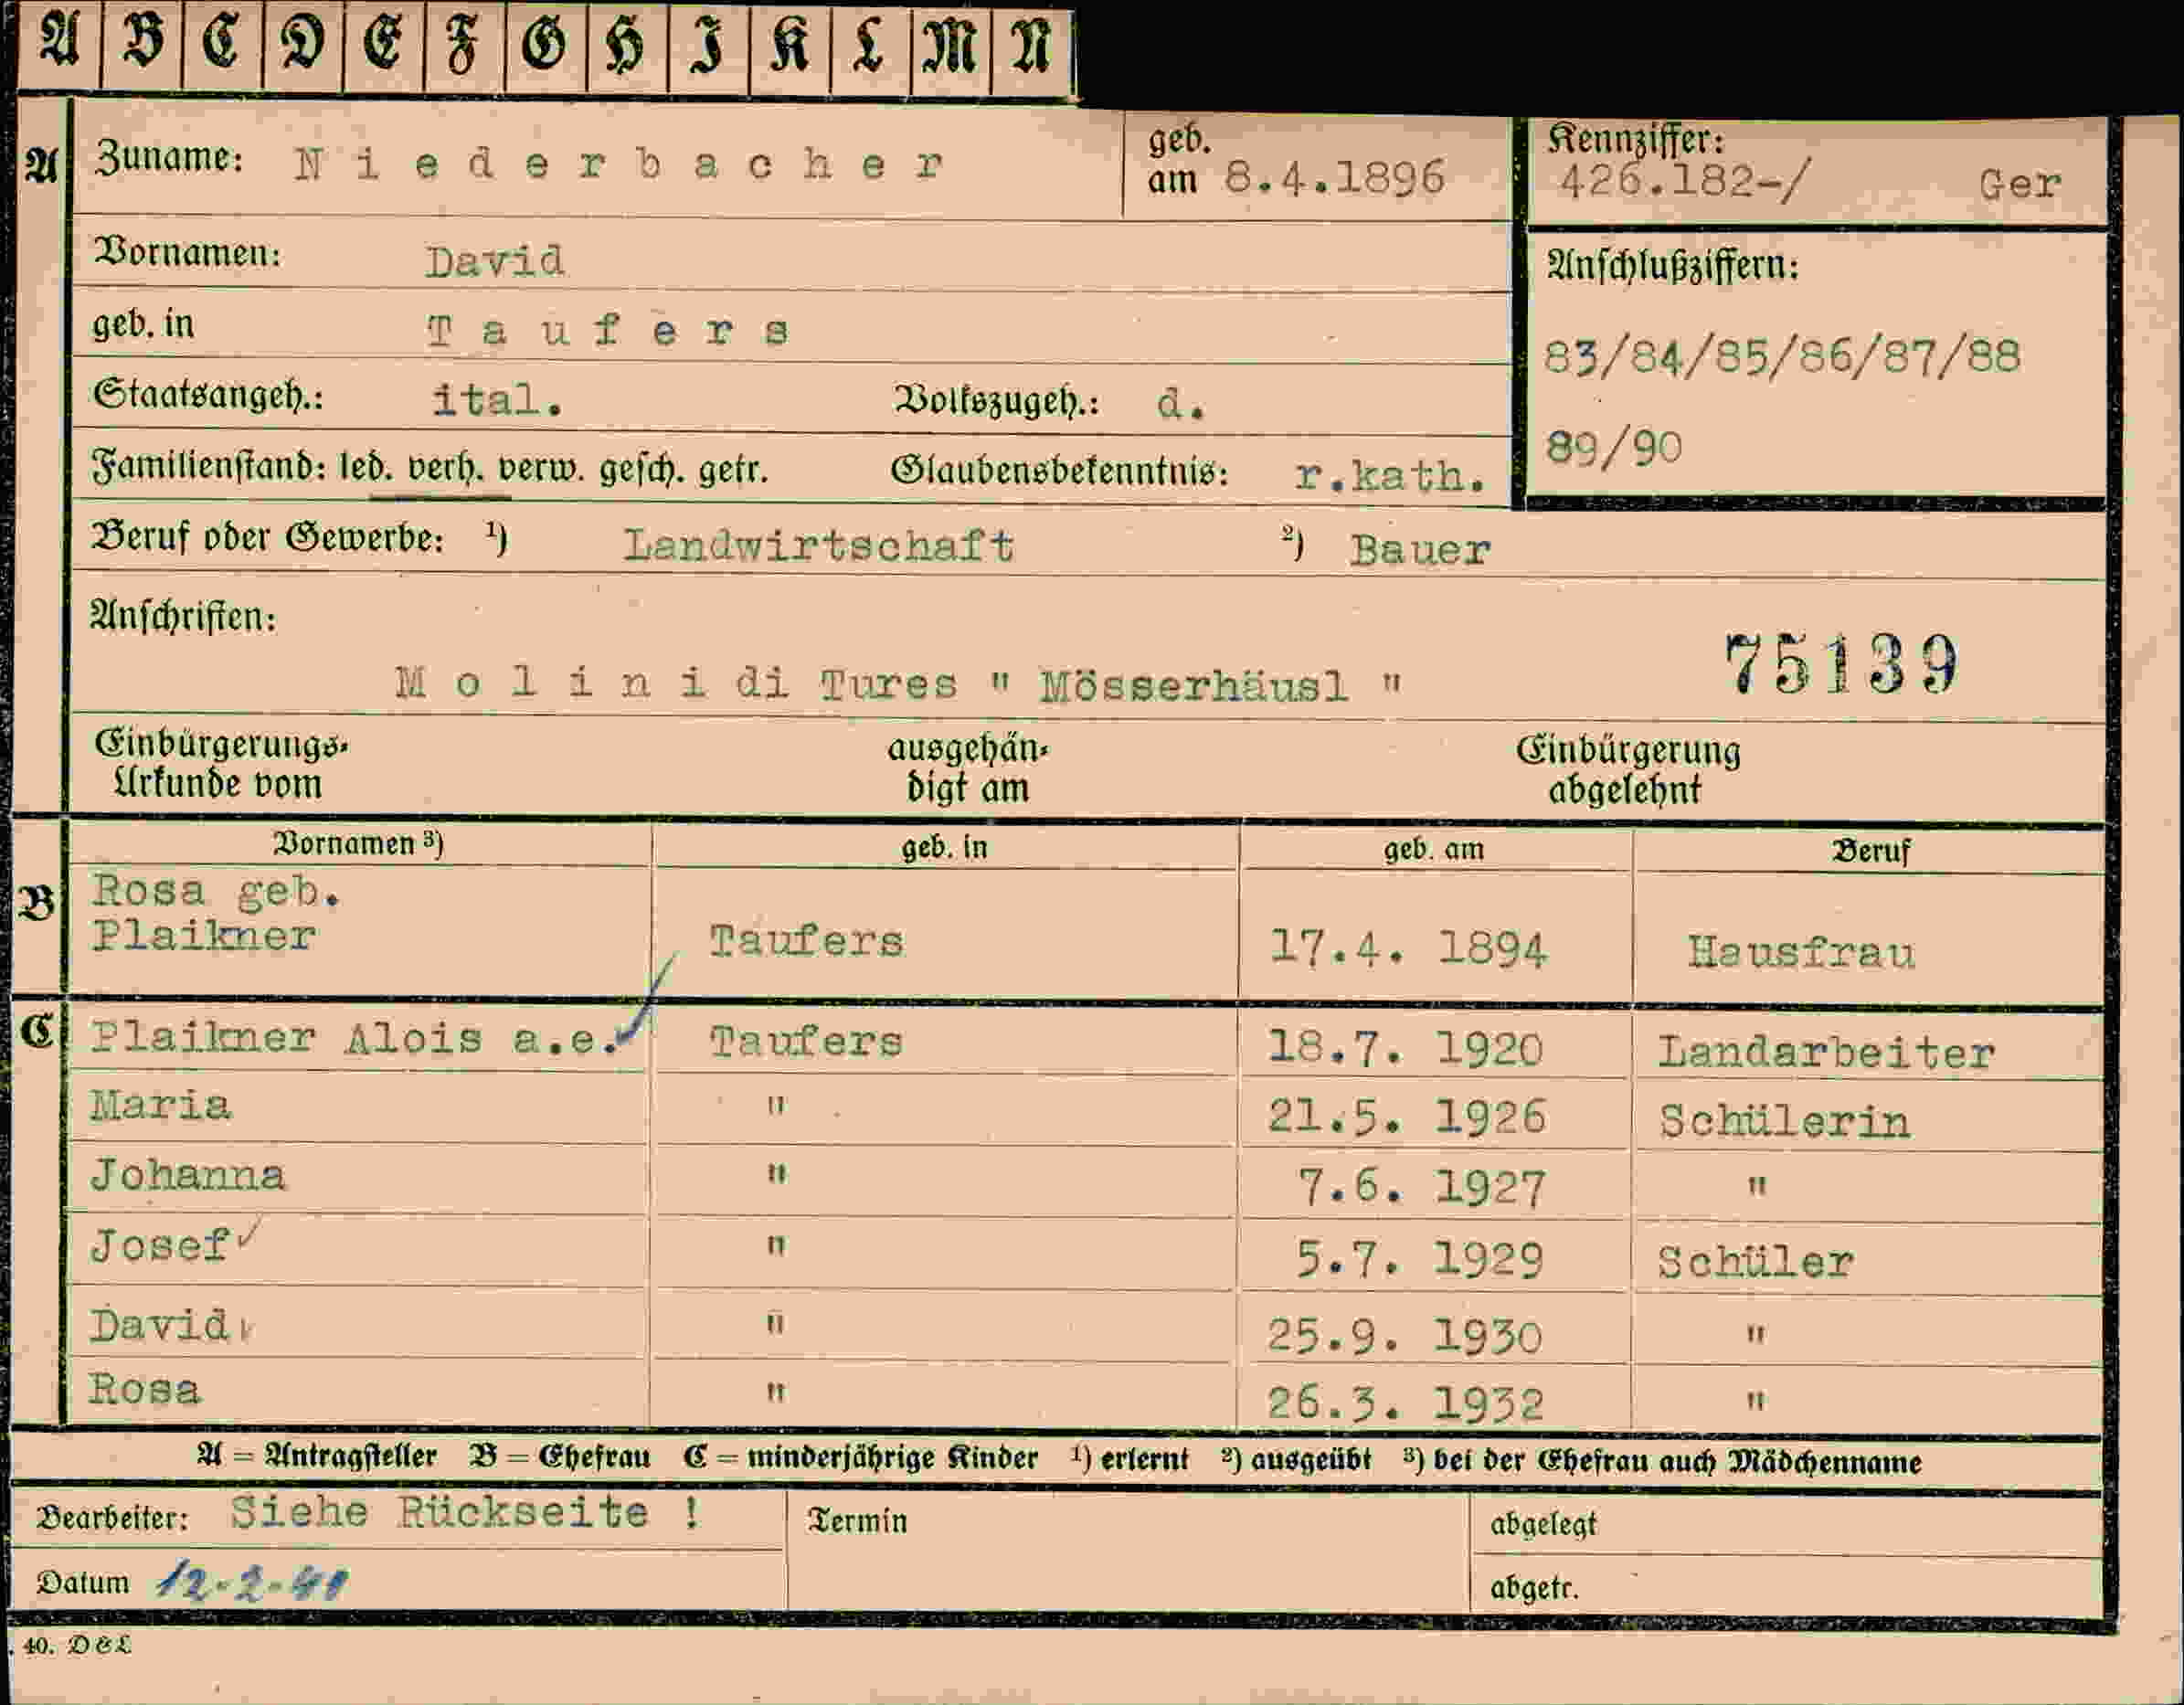 A B C D E F G H I K L M N
A Zuname: Niederbacher geb. am 8.4.1896 Kennziffer: 426.182-/ Ger
Vornamen: David Anschlußziffern:
geb. in Taufers 83/84/85/86/87/88
Staatsangeh.: ital. Volkszugeh.: d.
89/90
Familienstand: led. verh. verw. gesch. getr. Glaubensbekenntnis: r.kath.
Beruf oder Gewerbe: ¹) Landwirtschaft ²) Bauer
Anschriften:
Molini di Tures " Mösserhäusl " 75139
Einbürgerungs- ausgehän- Einbürgerung
Urkunde vom digt am abgelehnt
Vornamen ³) geb. in geb. am Beruf
B Rosa geb.
Plaikner Taufers 17.4. 1894 Hausfrau
C Plaikner Alois a.e. Taufers 18.7. 1920 Landarbeiter
Maria " 21.5. 1926 Schülerin
Johanna " 7.6. 1927 "
Josef " 5.7. 1929 Schüler
David " 25.9. 1930 "
Rosa " 26.3. 1932 "
A = Antragsteller B = Ehefrau C = minderjährige Kinder ¹) erlernt ²) ausgeübt ³) bei der Ehefrau auch Mädchenname
Bearbeiter: Siehe Rückseite ! Termin abgelegt
Datum 12-2-40 abgetr.
40. D & L